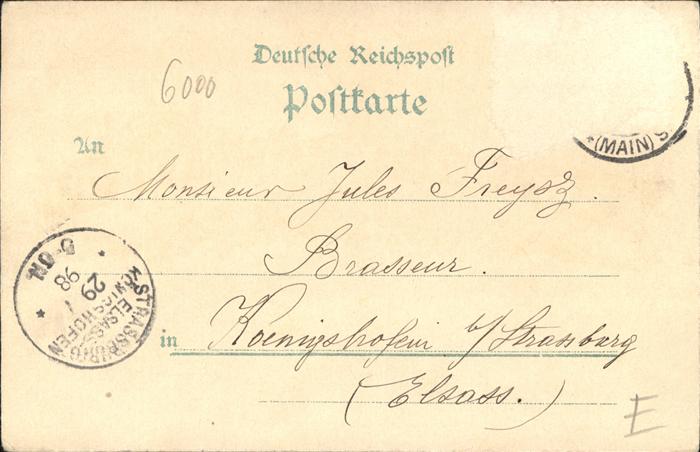 Deutsche Reichspost
6000
Postkarte
(MAIN) 9
An
Monsieur Jules Freysz.
Brasseur.
in Koenigshofen b/Strassburg
(Elsass.)
STRASSBURG
KÖNIGSHOFEN
ELSASS
29 1
98
E